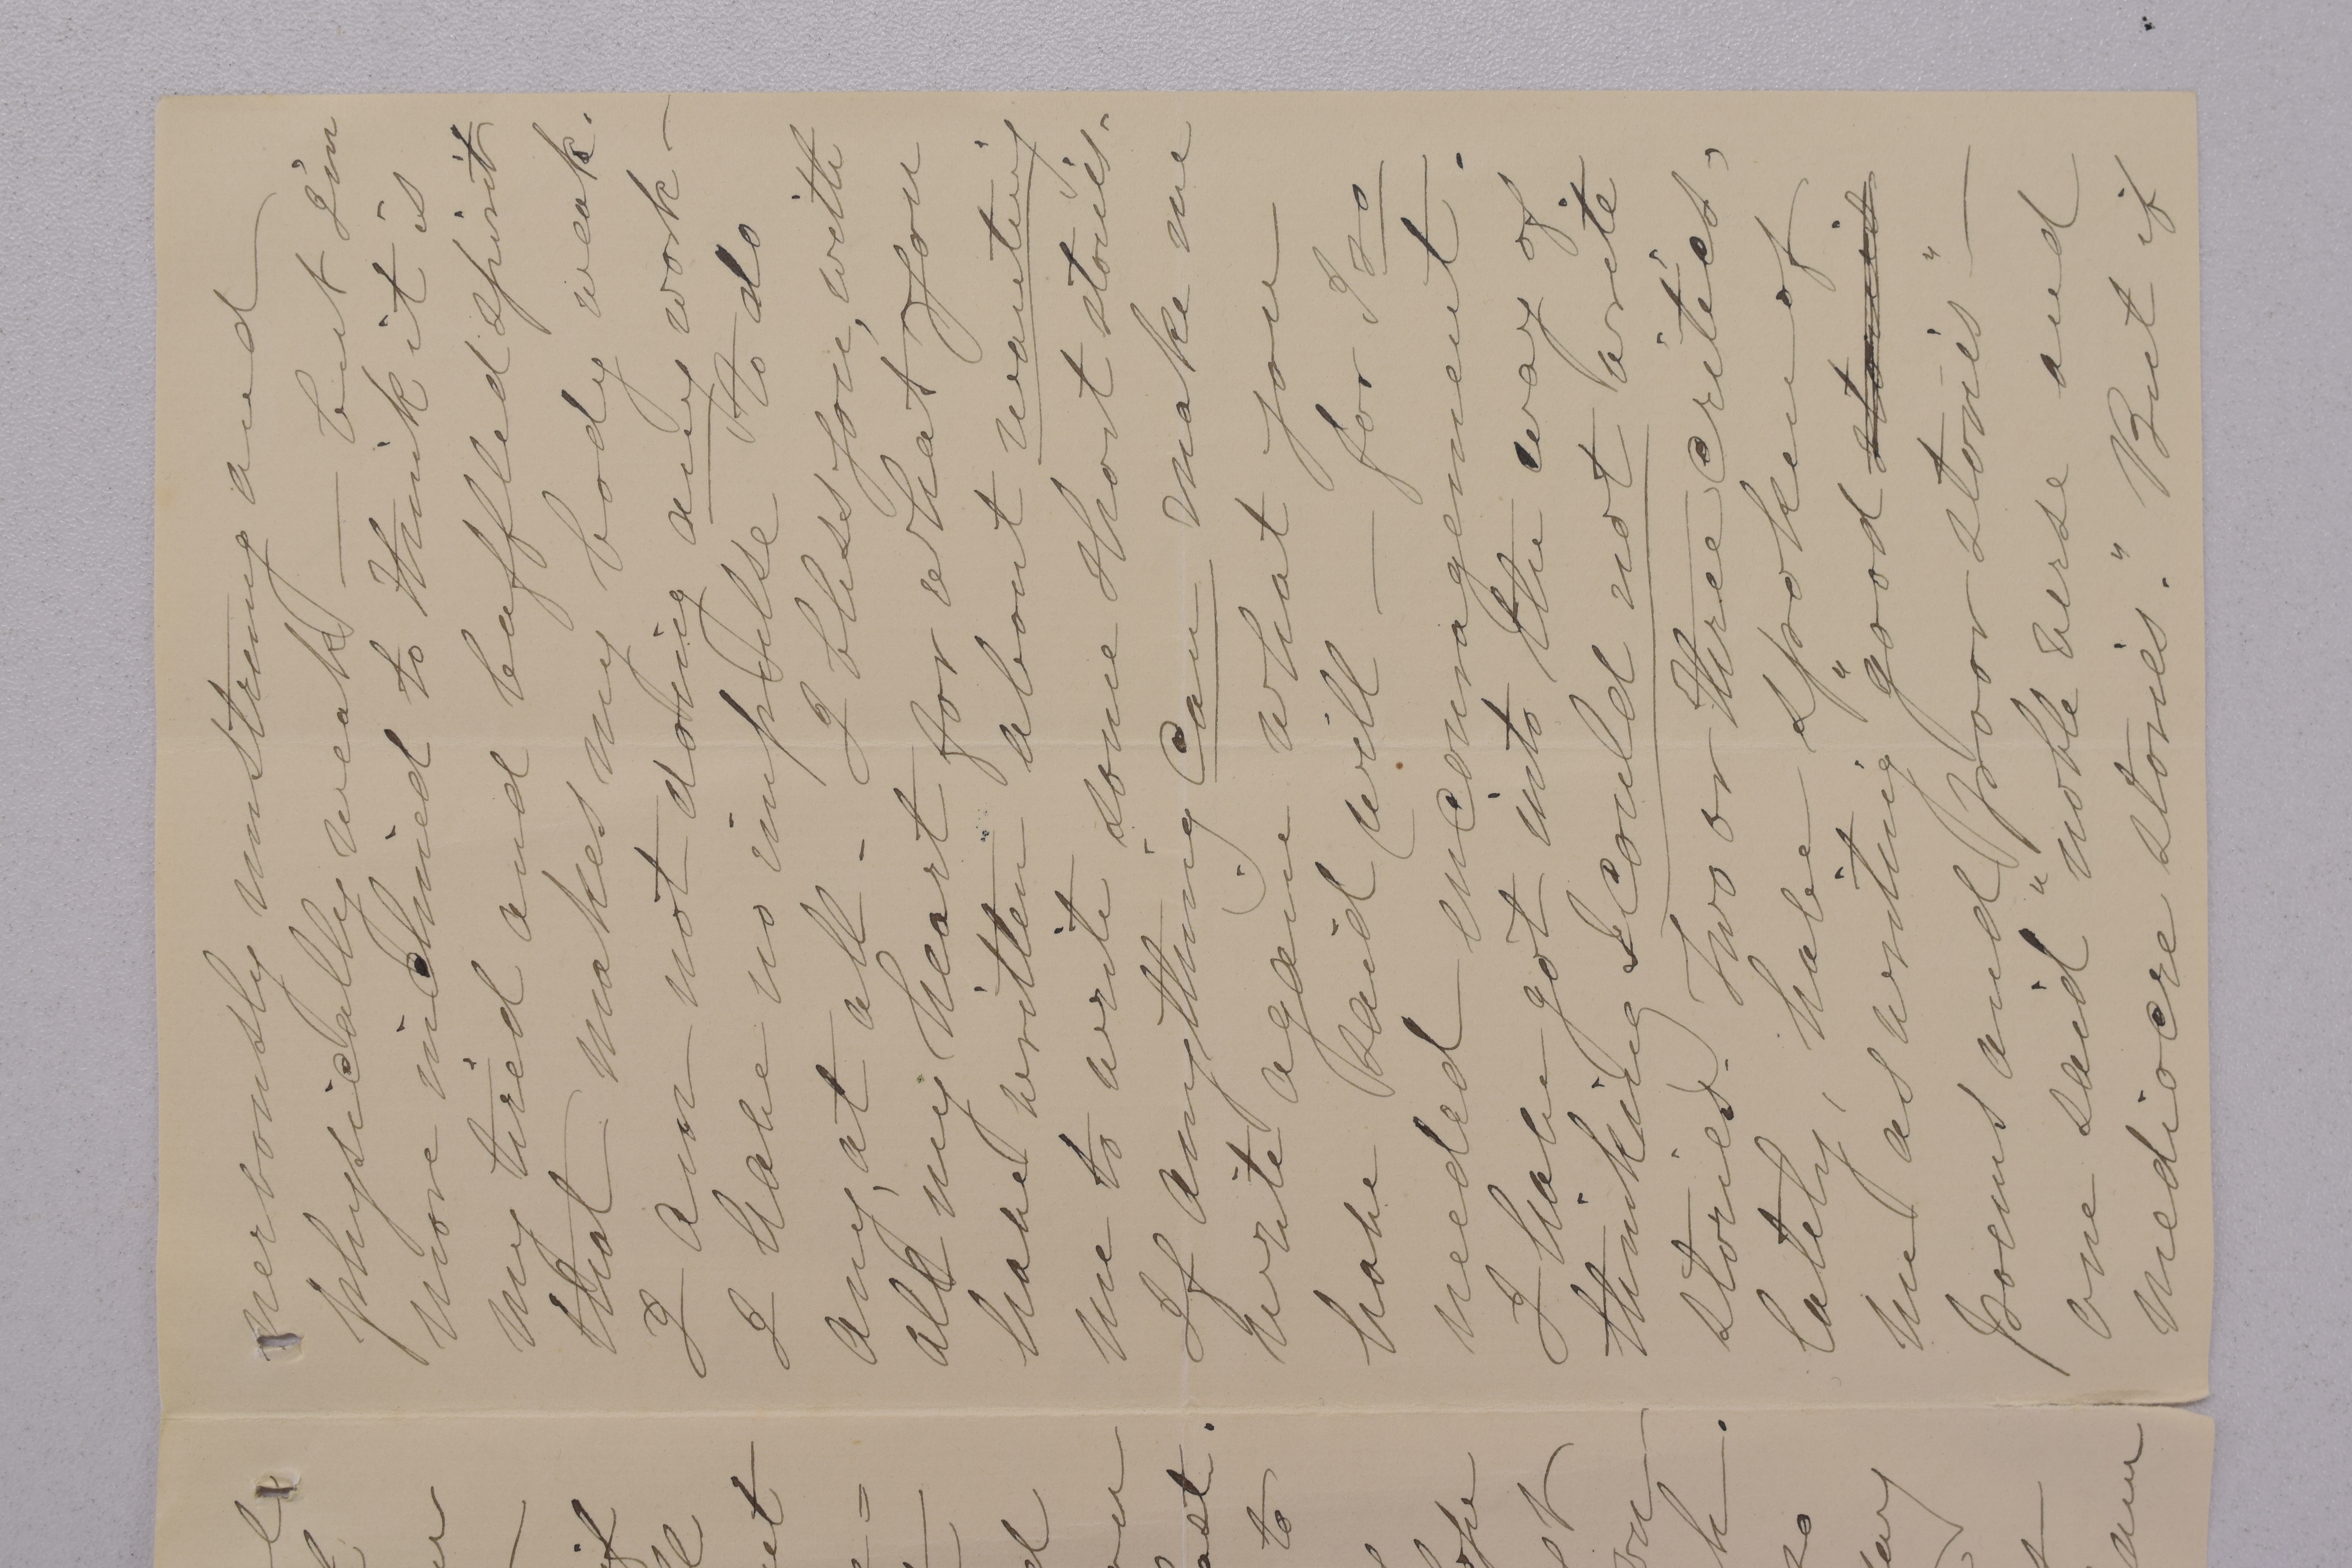 nervously unstrung and
physically weak — but I'm
more inclined to think it is
my tired and baffled spirit
that makes my body weak.
I am not doing any work —
I have no impulse to do
any, at all - I bless you, with
all my heart for what you
have written about wanting
me to write some short stories.
If anything can make me
write again what you
have said will — for I so
needed encouragement.
I have got into the way of
thinking I could not write
stories. Two or three critics,
lately, have spoken of
me as writing "good stories
poems and poor stories" —
one said "noble verse and
mediocre stories." But if
if
et
d
ast.
to
st
k.
so
am